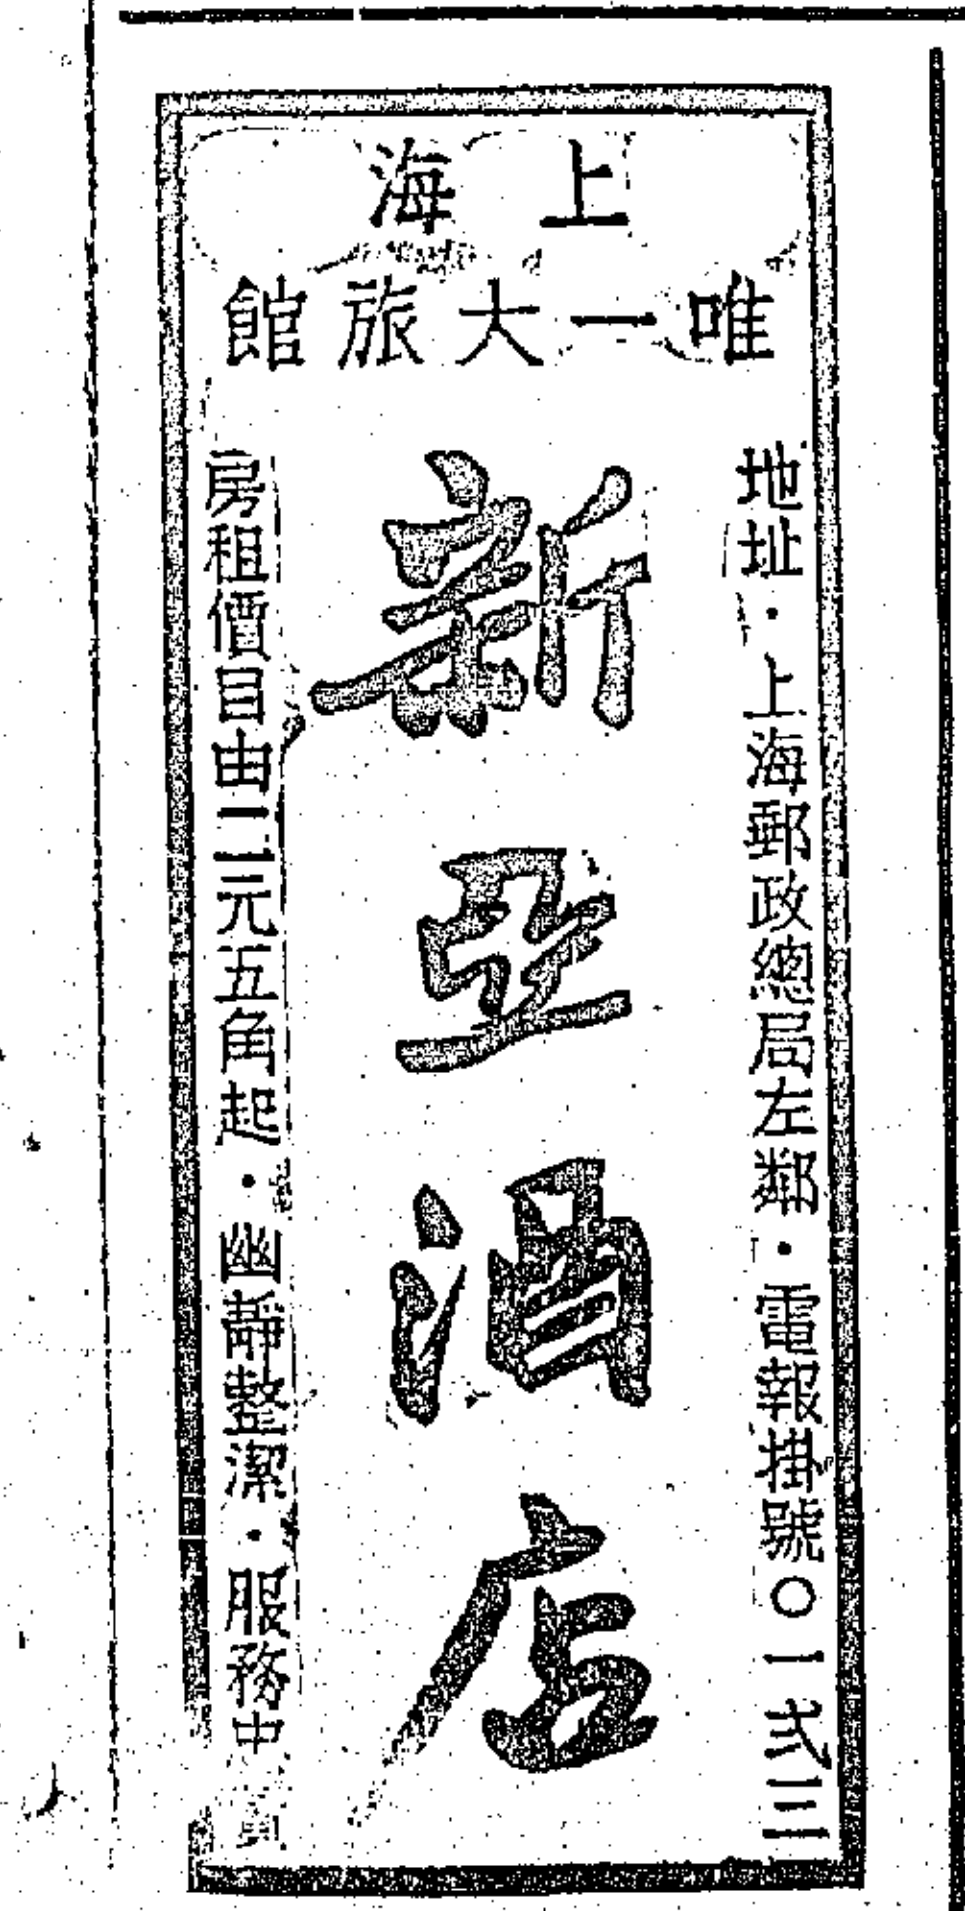 上海
唯一大旅館
地址·上海郵政總局左鄰·電報掛號〇一弍三
新亞酒店
房租價目由二元五角起·幽靜整潔·服務中